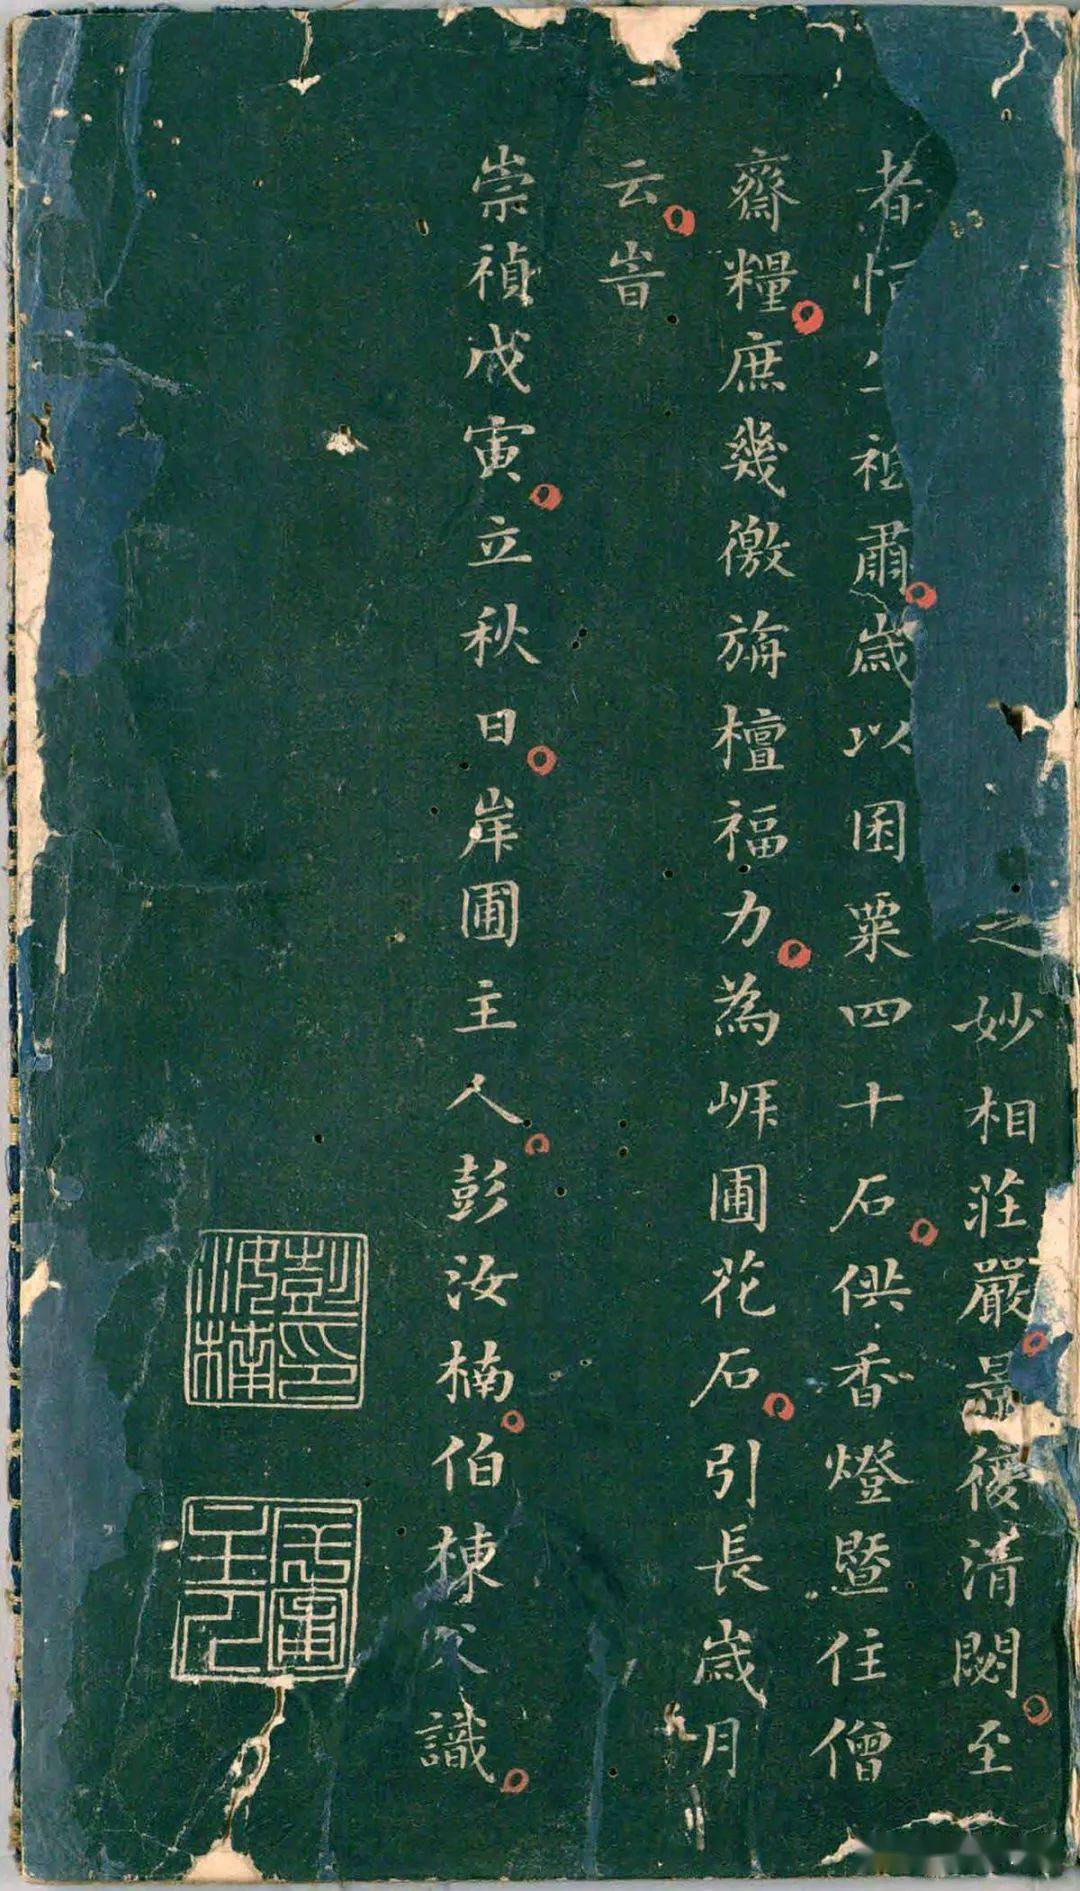 之妙相莊嚴景復清閟至
者恒祗肅歲以囷粟四十石供香燈暨住僧
齋糧庶幾徼旃檀福力為岸圃花石引長歲月
云旹
崇禎戊寅立秋日岸圃主人彭汝楠伯棟父識
彭印汝楠